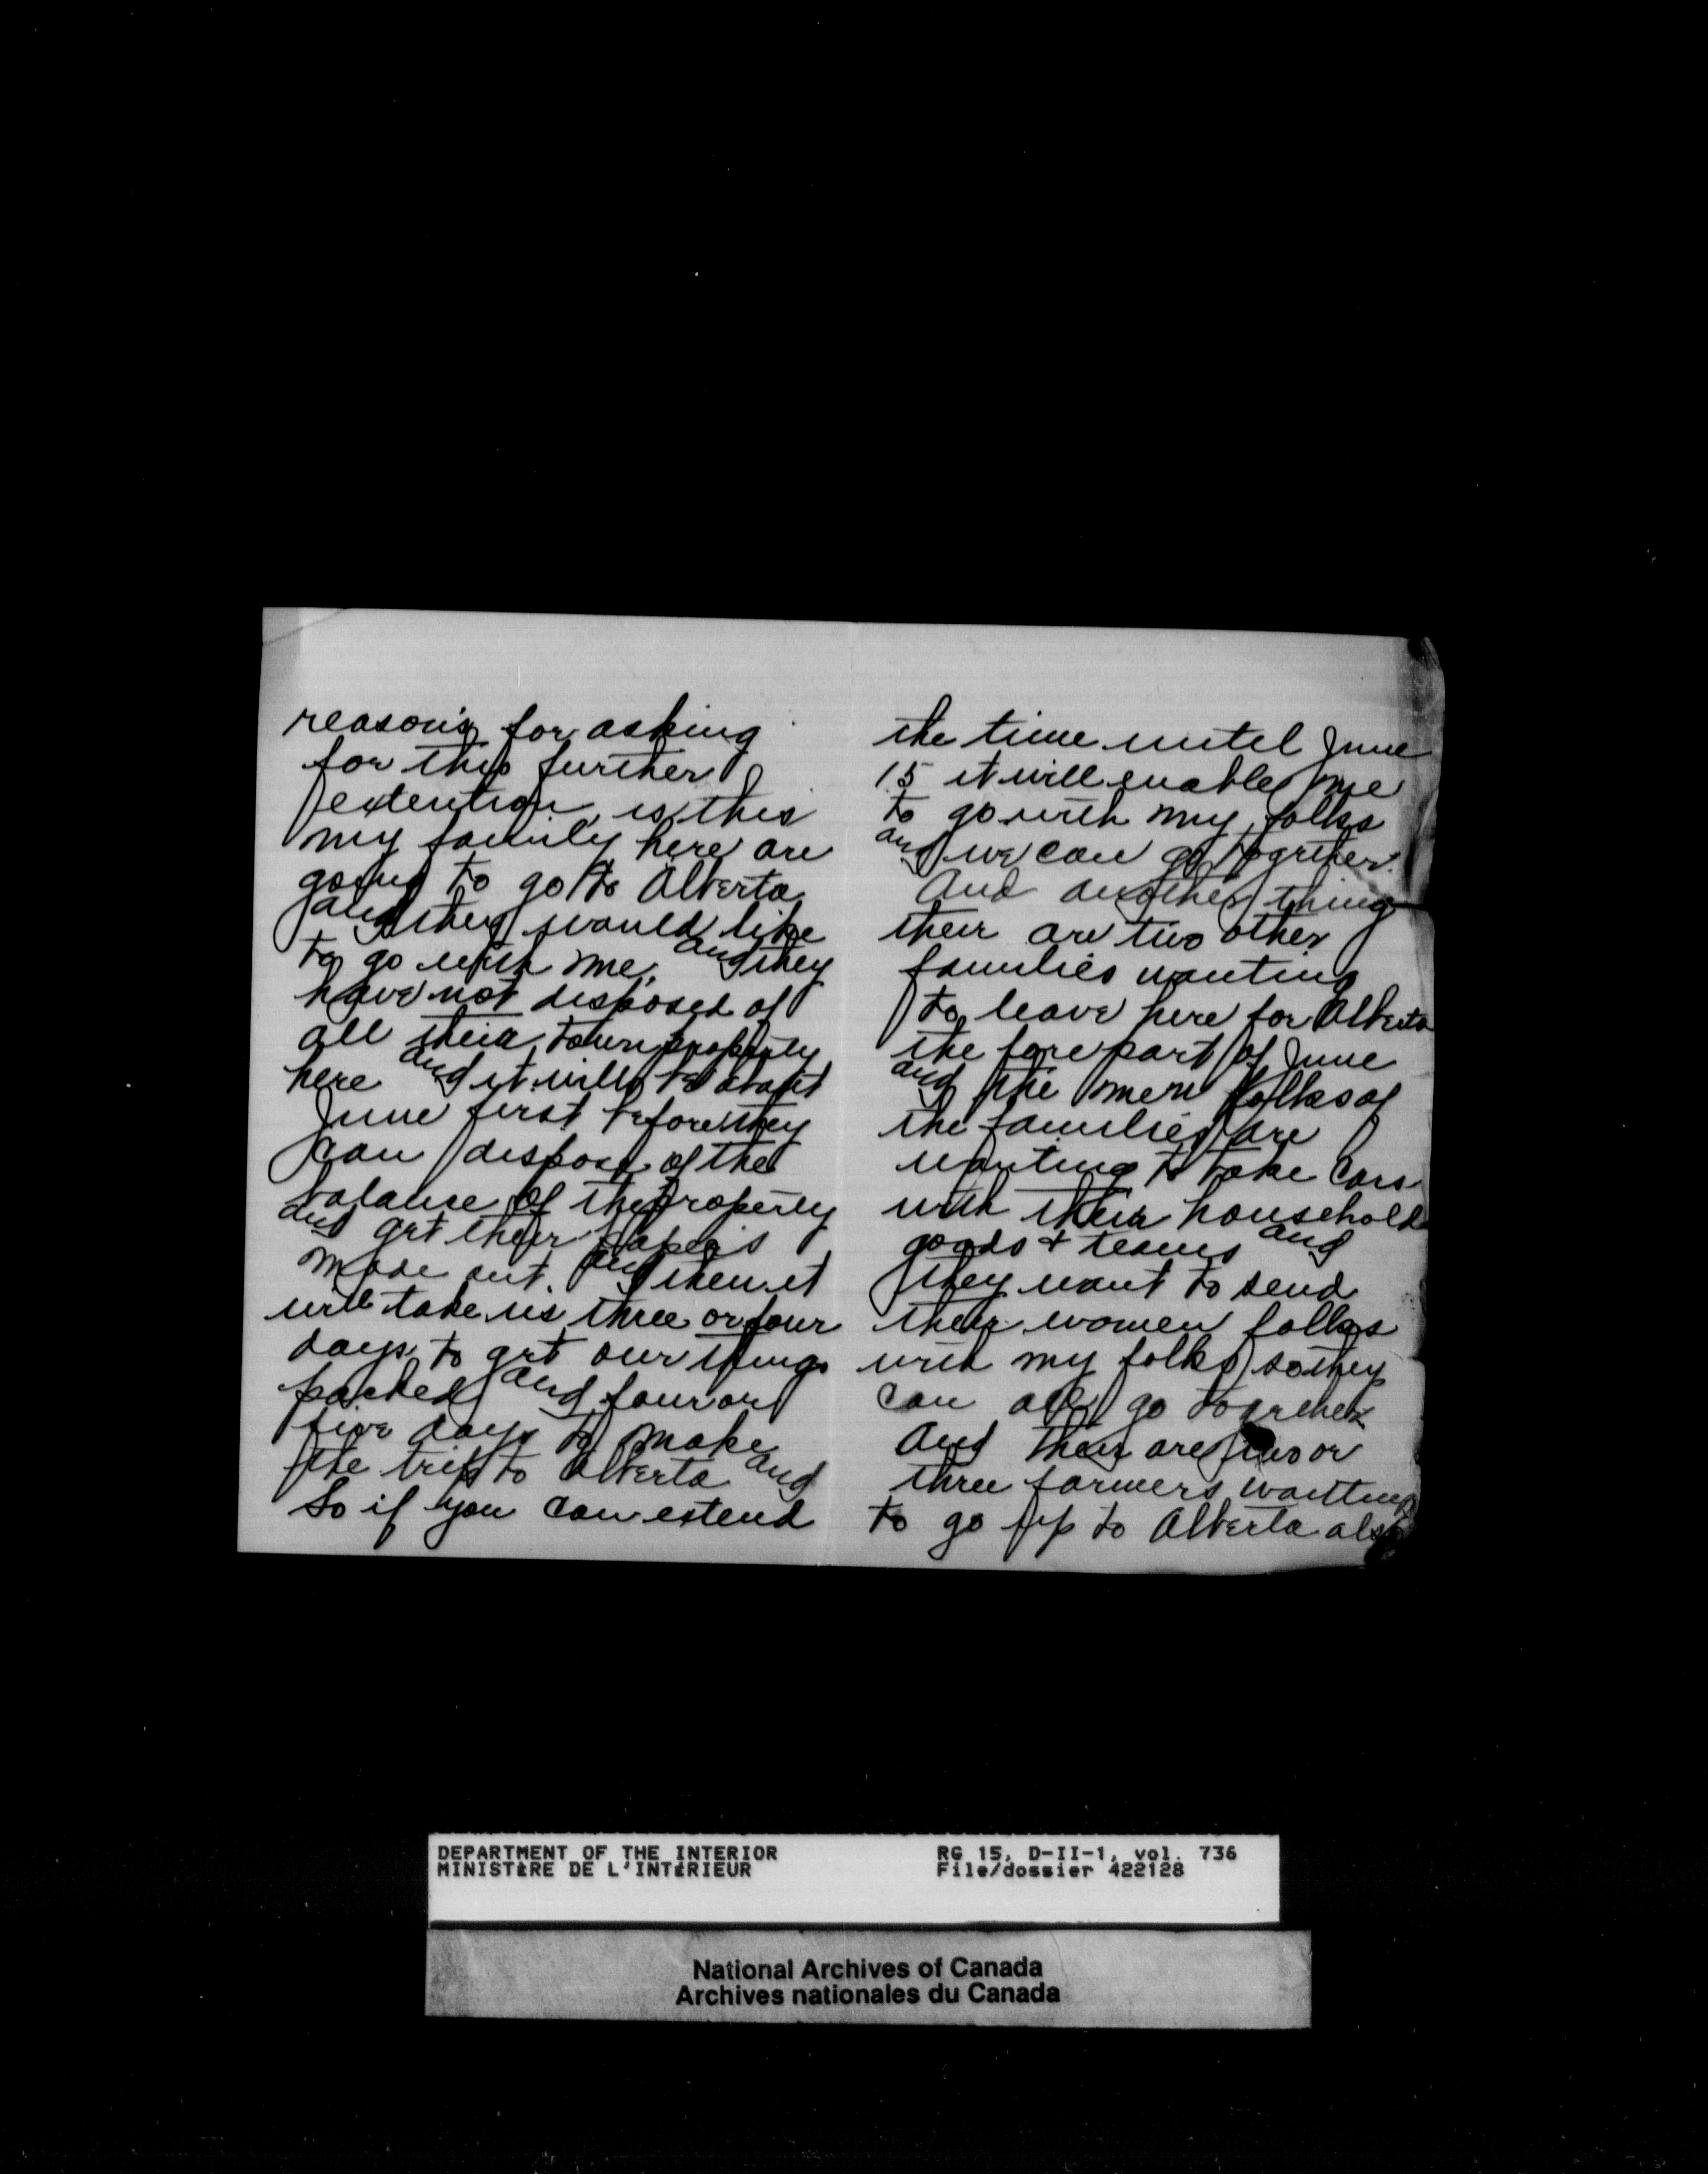 reasons for asking
for this further
extention is this
my family here are
going to go to Alberta
and they would like
to go with me, and they
have not disposed of
all their town property
here and it will be about
June first before they
can dispose of the
balance of the property
and get their papers
made out. and then it
will take us three or four
days to get our things
packed and four or
five days to make
the trip to Alberta and
So if you can extend
the time untel June
15 it will enable me
to go with my folks
and we can go together.
And another thing
their are two other
families wanting
to leave here for Alberta
the fore part of June
and the men folks of
the families are
wanting to take cars
with their household
goods + teams and
they want to send
their women folks
with my folks so they
can all go together
And their are two or
three farmers wanting
to go up to Alberta also
DEPARTMENT OF THE INTERIOR
MINISTÈRE DE L'INTÉRIEUR
RG 15, D-II-1, vol. 736
File/dossier 422128
National Archives of Canada
Archives nationales du Canada